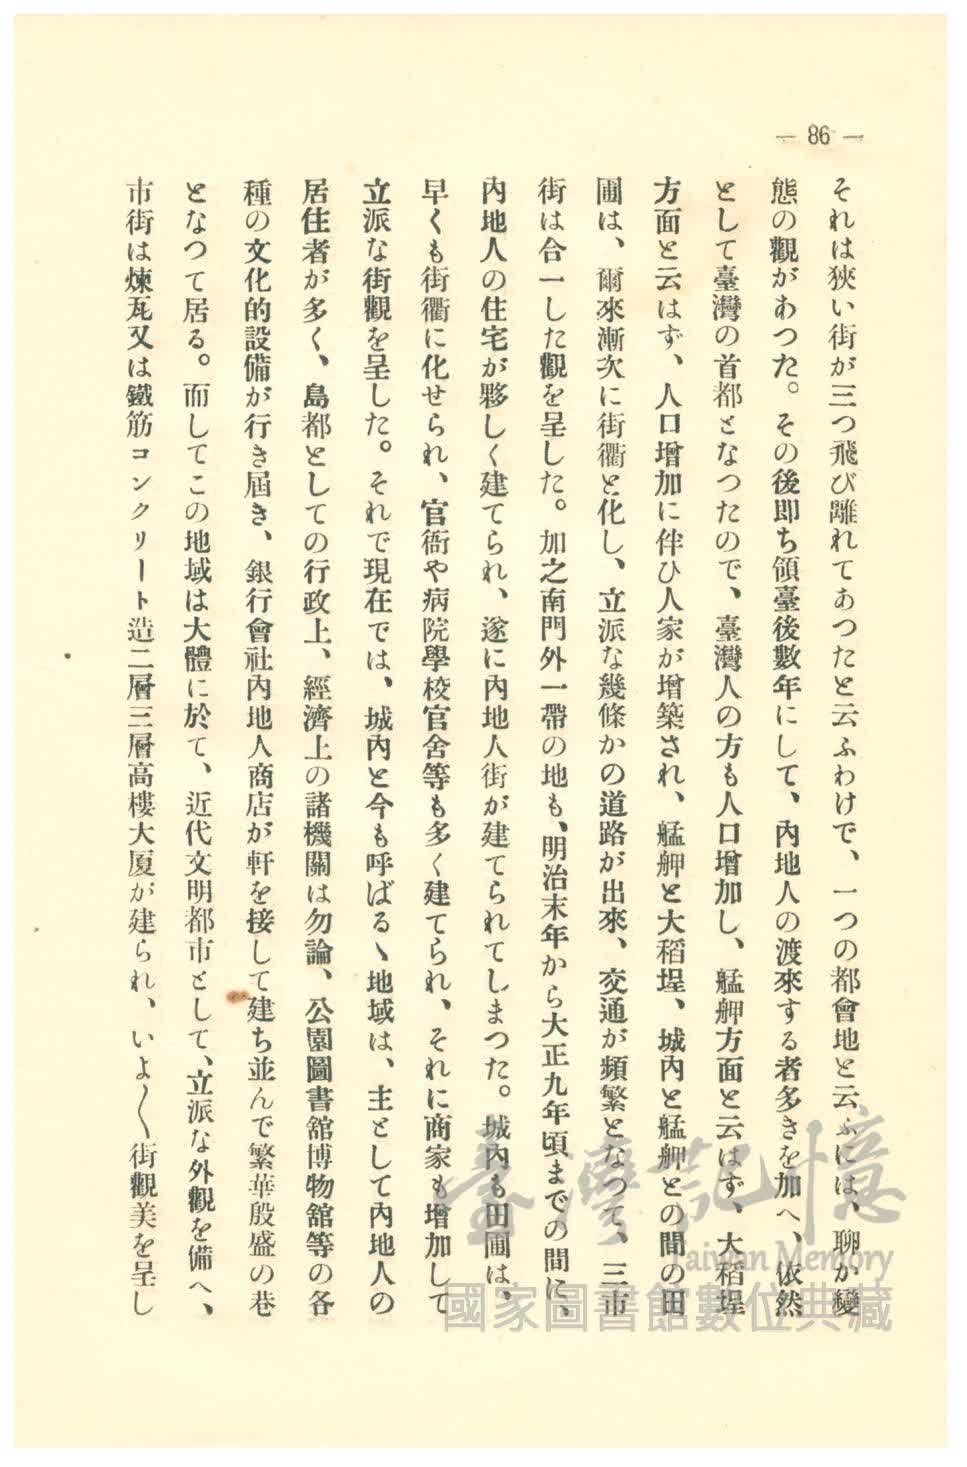 — 86 —
それは狹い街が三つ飛び離れてあつたと云ふわけで、一つの都會地と云ふには、聊か變
態の觀があつた。その後卽ち領臺後數年にして、內地人の渡來する者多きを加へ、依然
として臺灣の首都となつたので、臺灣人の方も人口增加し、艋舺方面と云はず、大稻埕
方面と云はず、人口增加に伴ひ人家が增築され、艋舺と大稻埕、城內と艋舺との間の田
圃は、爾來漸次に街衢と化し、立派な幾條かの道路が出來、交通が頻繁となつて、三市
街は合一した觀を呈した。加之南門外一帶の地も、明治末年から大正九年頃までの間に、
內地人の住宅が夥しく建てられ、遂に內地人街が建てられてしまつた。城內も田圃は、
早くも街衢に化せられ、官衙や病院學校官舍等も多く建てられ、それに商家も增加して
立派な街觀を呈した。それで現在では、城內と今も呼ばるゝ地域は、主として內地人の
居住者が多く、島都としての行政上、經濟上の諸機關は勿論、公園圖書舘博物舘等の各
種の文化的設備が行き屆き、銀行會社內地人商店が軒を接して建ち並んで繁華殷盛の巷
となつて居る。而してこの地域は大體に於て、近代文明都市として、立派な外觀を備へ、
市街は煉瓦又は鐵筋コンクリート造二層三層高樓大厦が建られ、いよ〱街觀美を呈し
臺灣記憶
Taiwan Memory
國家圖書館數位典藏